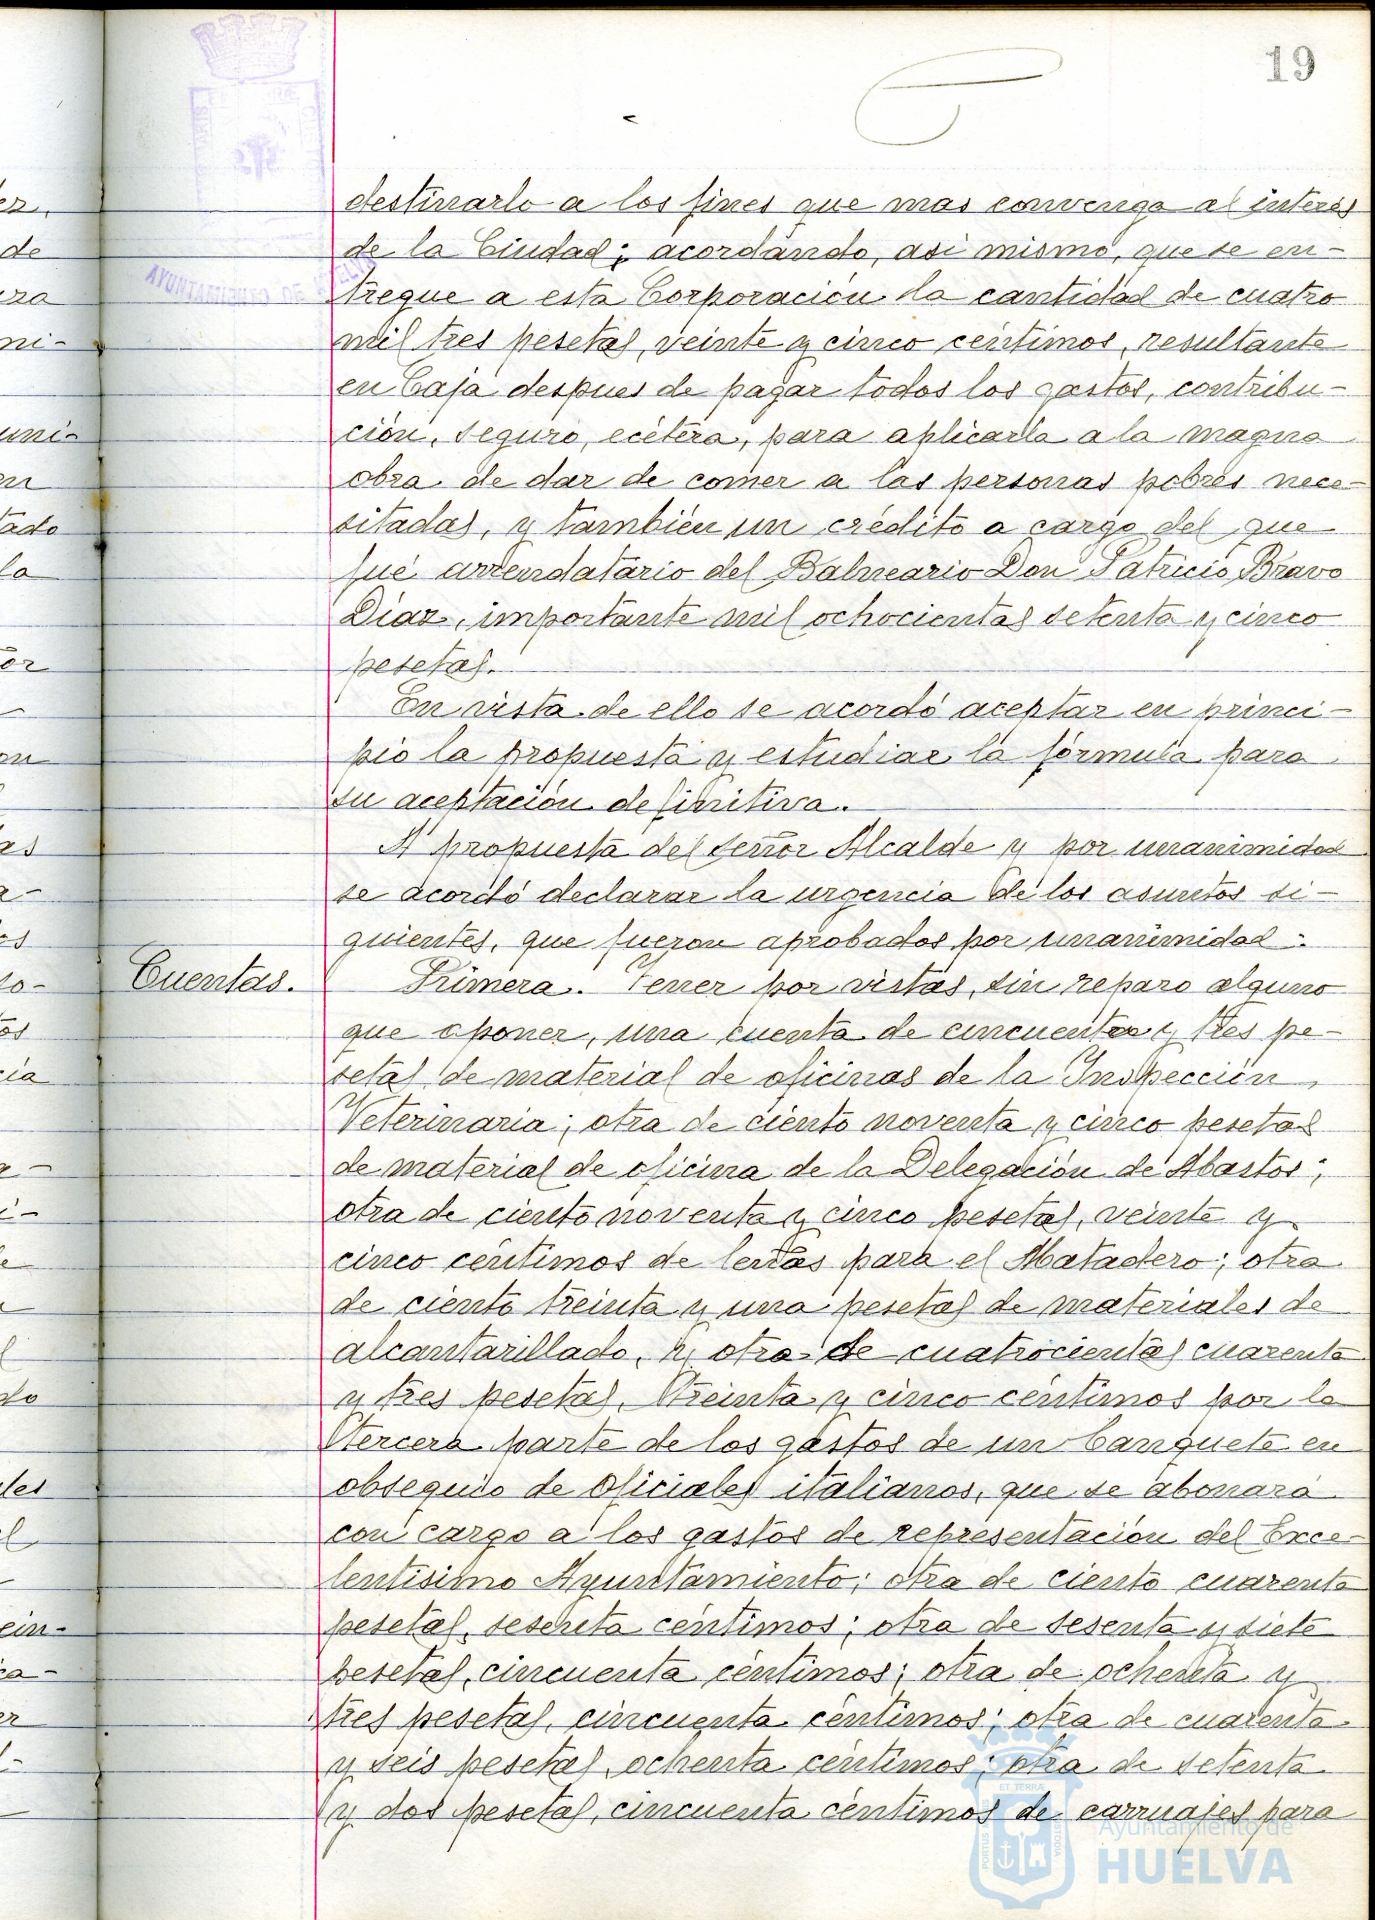 19
destinarlo a los fines que mas convenga al interés
de la Ciudad; acordándo, asi mismo, que se en-
tregue a esta Corporación la cantidad de cuatro
mil tres pesetas, veinte y cinco céntimos, resultante
en Caja despues de pagar todos los gastos, contribu-
ción, seguro, ecétera, para aplicarla a la magna
obra de dar de comer a las personas pobres nece-
sitadas, y también un crédito a cargo del que
fué arrendatario del Balneario Don Patricio Bravo
Díaz, importante mil ochocientas setenta y cinco
pesetas.
En vista de ello se acordó aceptar en princi-
pio la propuesta y estudiar la fórmula para
su aceptación definitiva.
A propuesta del señor Alcalde y por unanimidad
se acordó declarar la urgencia de los asuntos si-
guientes, que fueron aprobados por unanimidad:
Cuentas.
Primera. Tener por vistas, sin reparo alguno
que oponer, una cuenta de cincuenta y tres pe-
setas de material de oficinas de la Inspección
Veterinaria; otra de ciento noventa y cinco pesetas
de material de oficina de la Delegación de Abastos;
otra de ciento noventa y cinco pesetas, veinte y
cinco céntimos de leñas para el Matadero; otra
de ciento treinta y una pesetas de materiales de
alcantarillado, y otra de cuatrocientas cuarenta
y tres pesetas, treinta y cinco céntimos por la
tercera parte de los gastos de un banquete en
obsequio de oficiales italianos, que se abonará
con cargo a los gastos de representación del Exce-
lentísimo Ayuntamiento; otra de ciento cuarenta
pesetas, sesenta céntimos; otra de sesenta y siete
pesetas, cincuenta céntimos; otra de ochenta y
tres pesetas, cincuenta céntimos; otra de cuarenta
y seis pesetas, ochenta céntimos; otra de setenta
y dos pesetas, cincuenta céntimos de carruajes para
AYUNTAMIENTO DE HUELVA
Ayuntamiento de
HUELVA